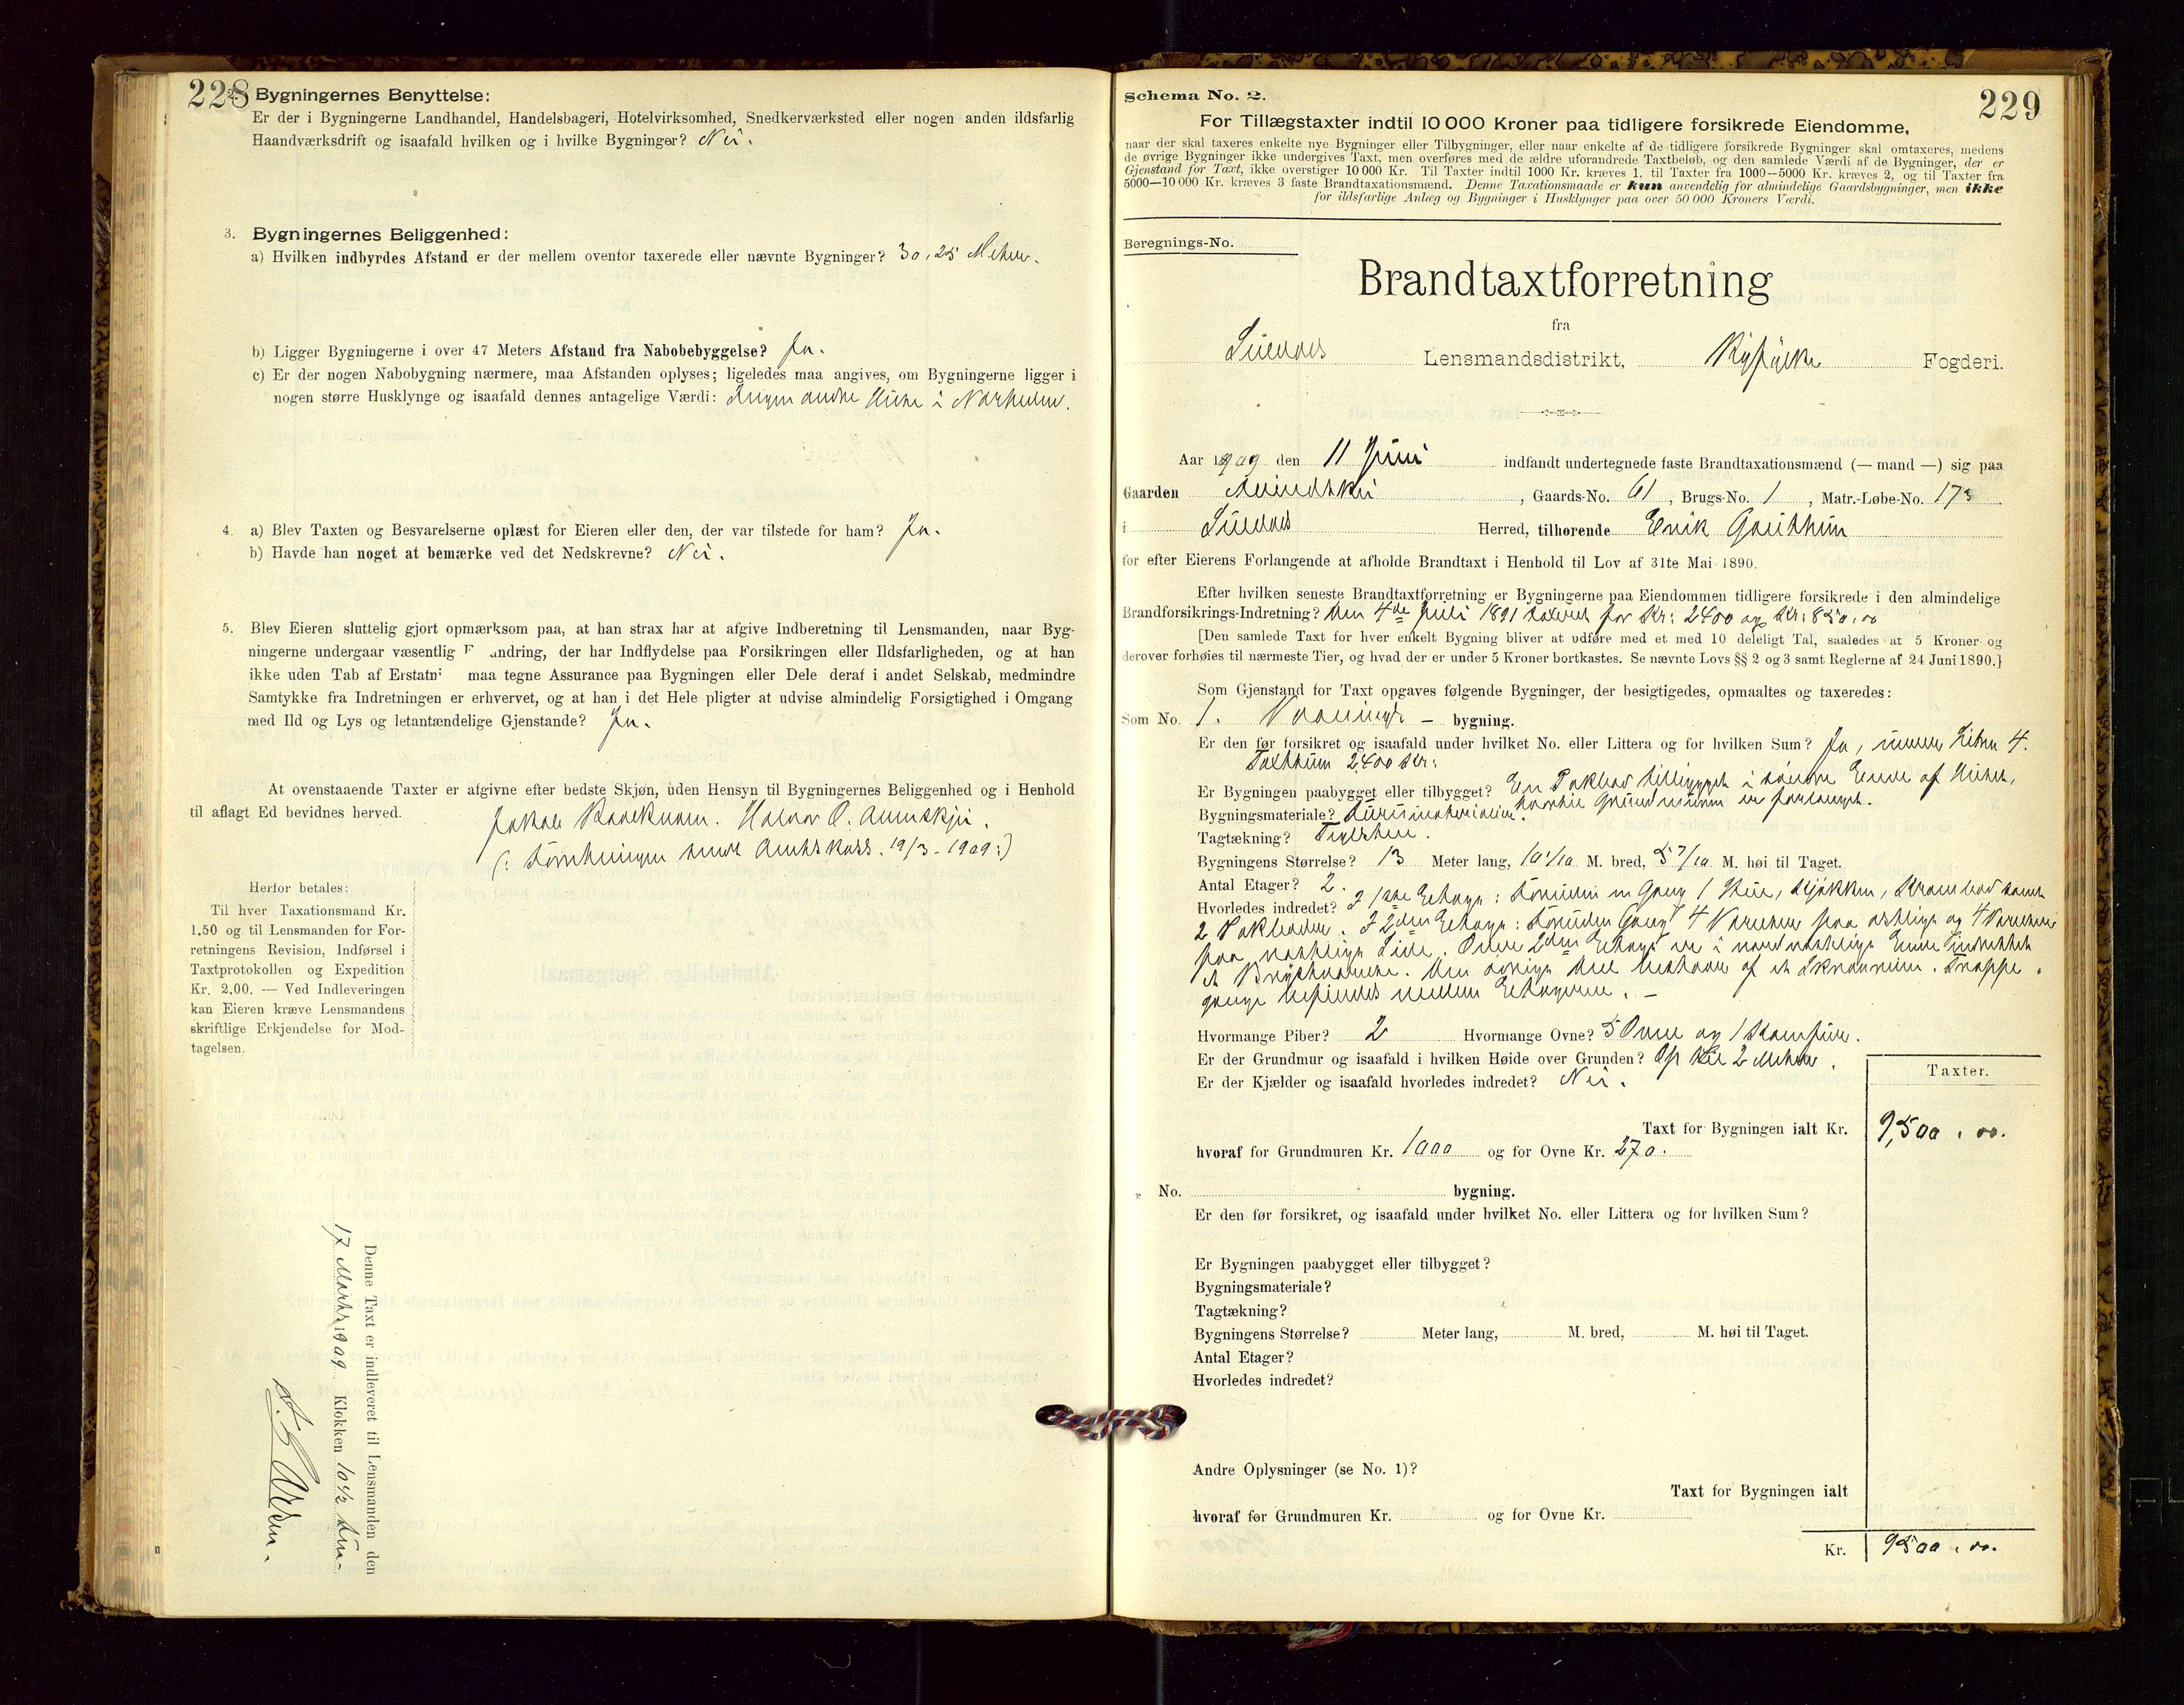 228
Bygningernes Benyttelse:
Er der i Bygningerne Landhandel, Handelsbageri, Hotelvirksomhed, Snedkerværksted eller nogen anden ildsfarlig
Haandværksdrift og isaafald hvilken og i hvilke Bygninger? Nei.
3. Bygningernes Beliggenhed:
a) Hvilken indbyrdes Afstand er der mellem ovenfor taxerede eller nævnte Bygninger? 30, 25 Meter.
b) Ligger Bygningerne i over 47 Meters Afstand fra Nabobebyggelse? Ja.
c) Er der nogen Nabobygning nærmere, maa Afstanden oplyses; ligeledes maa angives, om Bygningerne ligger i
nogen større Husklynge og isaafald dennes antagelige Værdi: Ingen andre Huse i Nærheden.
4. a) Blev Taxten og Besvarelserne oplæst for Eieren eller den, der var tilstede for ham? Ja.
b) Havde han noget at bemærke ved det Nedskrevne? Nei.
5. Blev Eieren sluttelig gjort opmærksom paa, at han strax har at afgive Indberetning til Lensmanden, naar Byg-
ningerne undergaar væsentlig F andring, der har Indflydelse paa Forsikringen eller Ildsfarligheden, og at han
ikke uden Tab af Erstatn maa tegne Assurance paa Bygningen eller Dele deraf i andet Selskab, medmindre
Samtykke fra Indretningen er erhvervet, og at han i det Hele pligter at udvise almindelig Forsigtighed i Omgang
med Ild og Lys og letantændelige Gjenstande? Ja.
At ovenstaaende Taxter er afgivne efter bedste Skjøn, uden Hensyn til Bygningernes Beliggenhed og i Henhold
til aflagt Ed bevidnes herved.
Jakob Halvor O.
sendt Amtskass. 19/3-1909:)
Herfor betales:
Til hver Taxationsmand Kr.
1.50 og til Lensmanden for For-
retningens Revision, Indførsel i
Taxtprotokollen og Expedition
Kr. 2.00. — Ved Indleveringen
kan Eieren kræve Lensmandens
skriftlige Erkjendelse for Mod-
tagelsen.
Denne Taxt er indleveret til Lensmanden den
17 Marts 1909 Klokken 10 1/2
229
Schema No. 2.
For Tillægstaxter indtil 10 000 Kroner paa tidligere forsikrede Eiendomme,
naar der skal taxeres enkelte nye Bygninger eller Tilbygninger, eller naar enkelte af de tidligere forsikrede Bygninger skal omtaxeres, medens
de øvrige Bygninger ikke undergives Taxt, men overføres med de ældre uforandrede Taxtbeløb, og den samlede Værdi af de Bygninger, der er
Gjenstand for Taxt, ikke overstiger 10 000 Kr. Til Taxter indtil 1000 Kr. kræves 1, til Taxter fra 1000—5000 Kr. kræves 2, og til Taxter fra
5000—10 000 Kr. kræves 3 faste Brandtaxationsmænd. Denne Taxationsmaade er kun anvendelig for almindelige Gaardsbygninger, men ikke
for ildsfarlige Anlæg og Bygninger i Husklynger paa over 50 000 Kroners Værdi.
Beregnings-No.
Brandtaxtforretning
fra
Suldal Lensmandsdistrikt, Ryfylke Fogderi.
Aar 1909 den 11 Juni indfandt undertegnede faste Brandtaxationsmænd (— mand —) sig paa
Gaarden , Gaards-No. 61, Brugs-No. 1, Matr.-Løbe-No. 173
i Suldal Herred, tilhørende Erik
for efter Eierens Forlangende at afholde Brandtaxt i Henhold til Lov af 31te Mai 1890.
Efter hvilken seneste Brandtaxtforretning er Bygningerne paa Eiendommen tidligere forsikrede i den almindelige
Brandforsikrings-Indretning? Den 4de Juli 1891 taxeret for Kr: 2400 og Kr: 850.00
[Den samlede Taxt for hver enkelt Bygning bliver at udføre med et med 10 deleligt Tal, saaledes at 5 Kroner og
derover forhøies til nærmeste Tier, og hvad der er under 5 Kroner bortkastes. Se nævnte Lovs §§ 2 og 3 samt Reglerne af 24 Juni 1890.]
Som Gjenstand for Taxt opgaves følgende Bygninger, der besigtigedes, opmaaltes og taxeredes:
Som No. 1. Vaanings - bygning.
Er den før forsikret og isaafald under hvilket No. eller Littera og for hvilken Sum? Ja, under Litra 4.
Taxtsum 2400 Kr:
Er Bygningen paabygget eller tilbygget? En Kakebod tilbygget i søndre Ende af Huset,
hvortil Grundmuren er forlænget.
Bygningsmateriale?
Tagtækning? Taglsten.
Bygningens Størrelse? 13 Meter lang, 10 1/10 M. bred, 5 7/10 M. høi til Taget.
Antal Etager? 2.
Hvorledes indredet? I 1ste Etage: foruden en Gang 1 Stue, Kjøkken, Krambod samt
2 . I 2den Etage: foruden Gang 4 Værelser paa østlige og 4 Værelser
paa vestlige Side. Over 2den Etage er i nordvestlige Ende indrettet
et . Den øvrige Del bestaar af et . Trappe-
gange befindes mellem Etagerne. —
Hvormange Piber? 2 Hvormange Ovne? 5 Ovne og 1 Komfur.
Er der Grundmur og isaafald i hvilken Høide over Grunden? Op til 2 Meter.
Er der Kjælder og isaafald hvorledes indredet? Nei.
Taxter.
Taxt for Bygningen ialt Kr. 9,500.00.
hvoraf for Grundmuren Kr. 1000 og for Ovne Kr. 270.
„ No. bygning.
Er den før forsikret, og isaafald under hvilket No. eller Littera og for hvilken Sum?
Er Bygningen paabygget eller tilbygget?
Bygningsmateriale?
Tagtækning?
Bygningens Størrelse? Meter lang, M. bred, M. høi til Taget.
Antal Etager?
Hvorledes indredet?
Andre Oplysninger (se No. 1)?
Taxt for Bygningen ialt
hvoraf for Grundmuren Kr. og for Ovne Kr.
Kr. 9500.00.